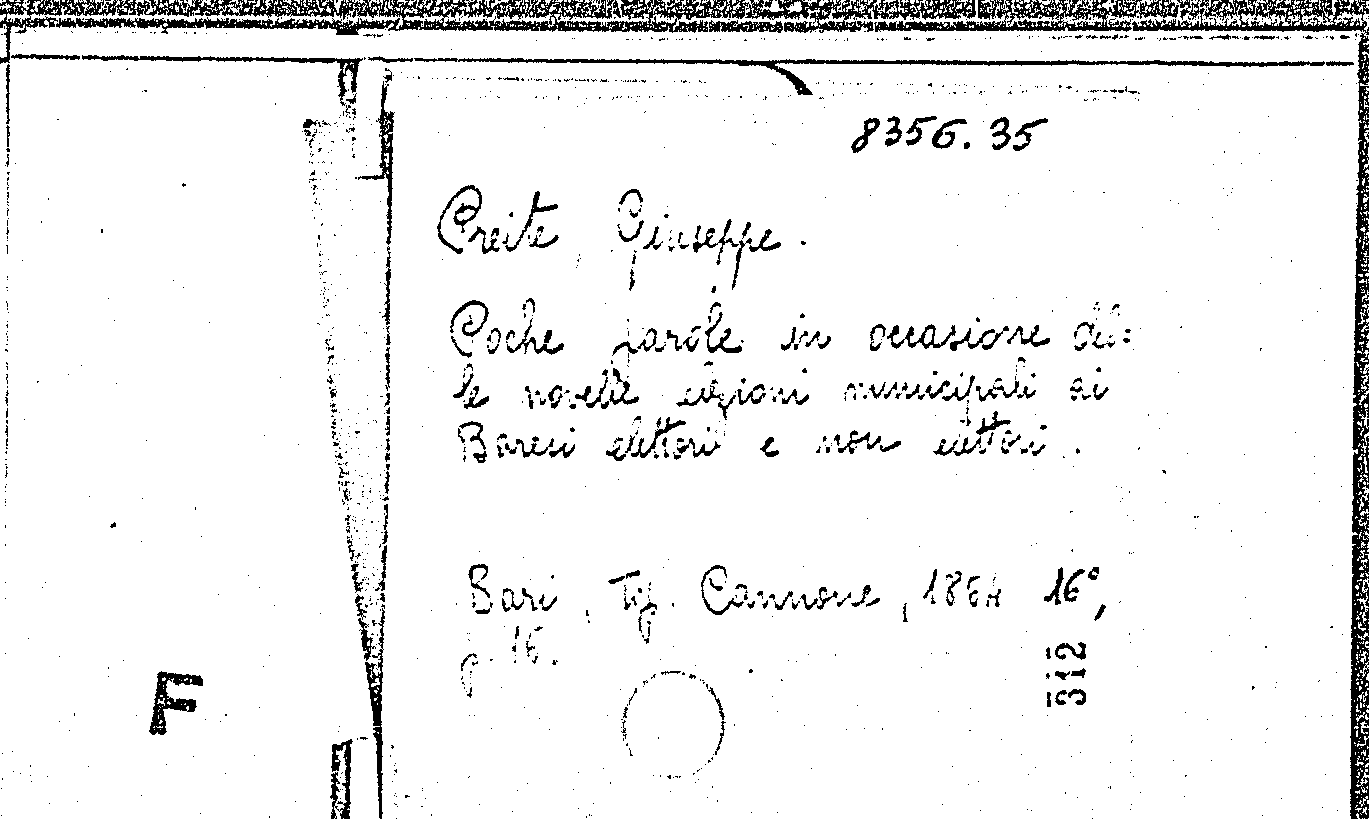 8356.35
Preite, Giuseppe.
Poche parole in occasione del=
le novelle elezioni municipali ai
Baresi elettori e non elettori.
Bari, Tip. Cannone, 1864 16°,
p. 16.
312
F